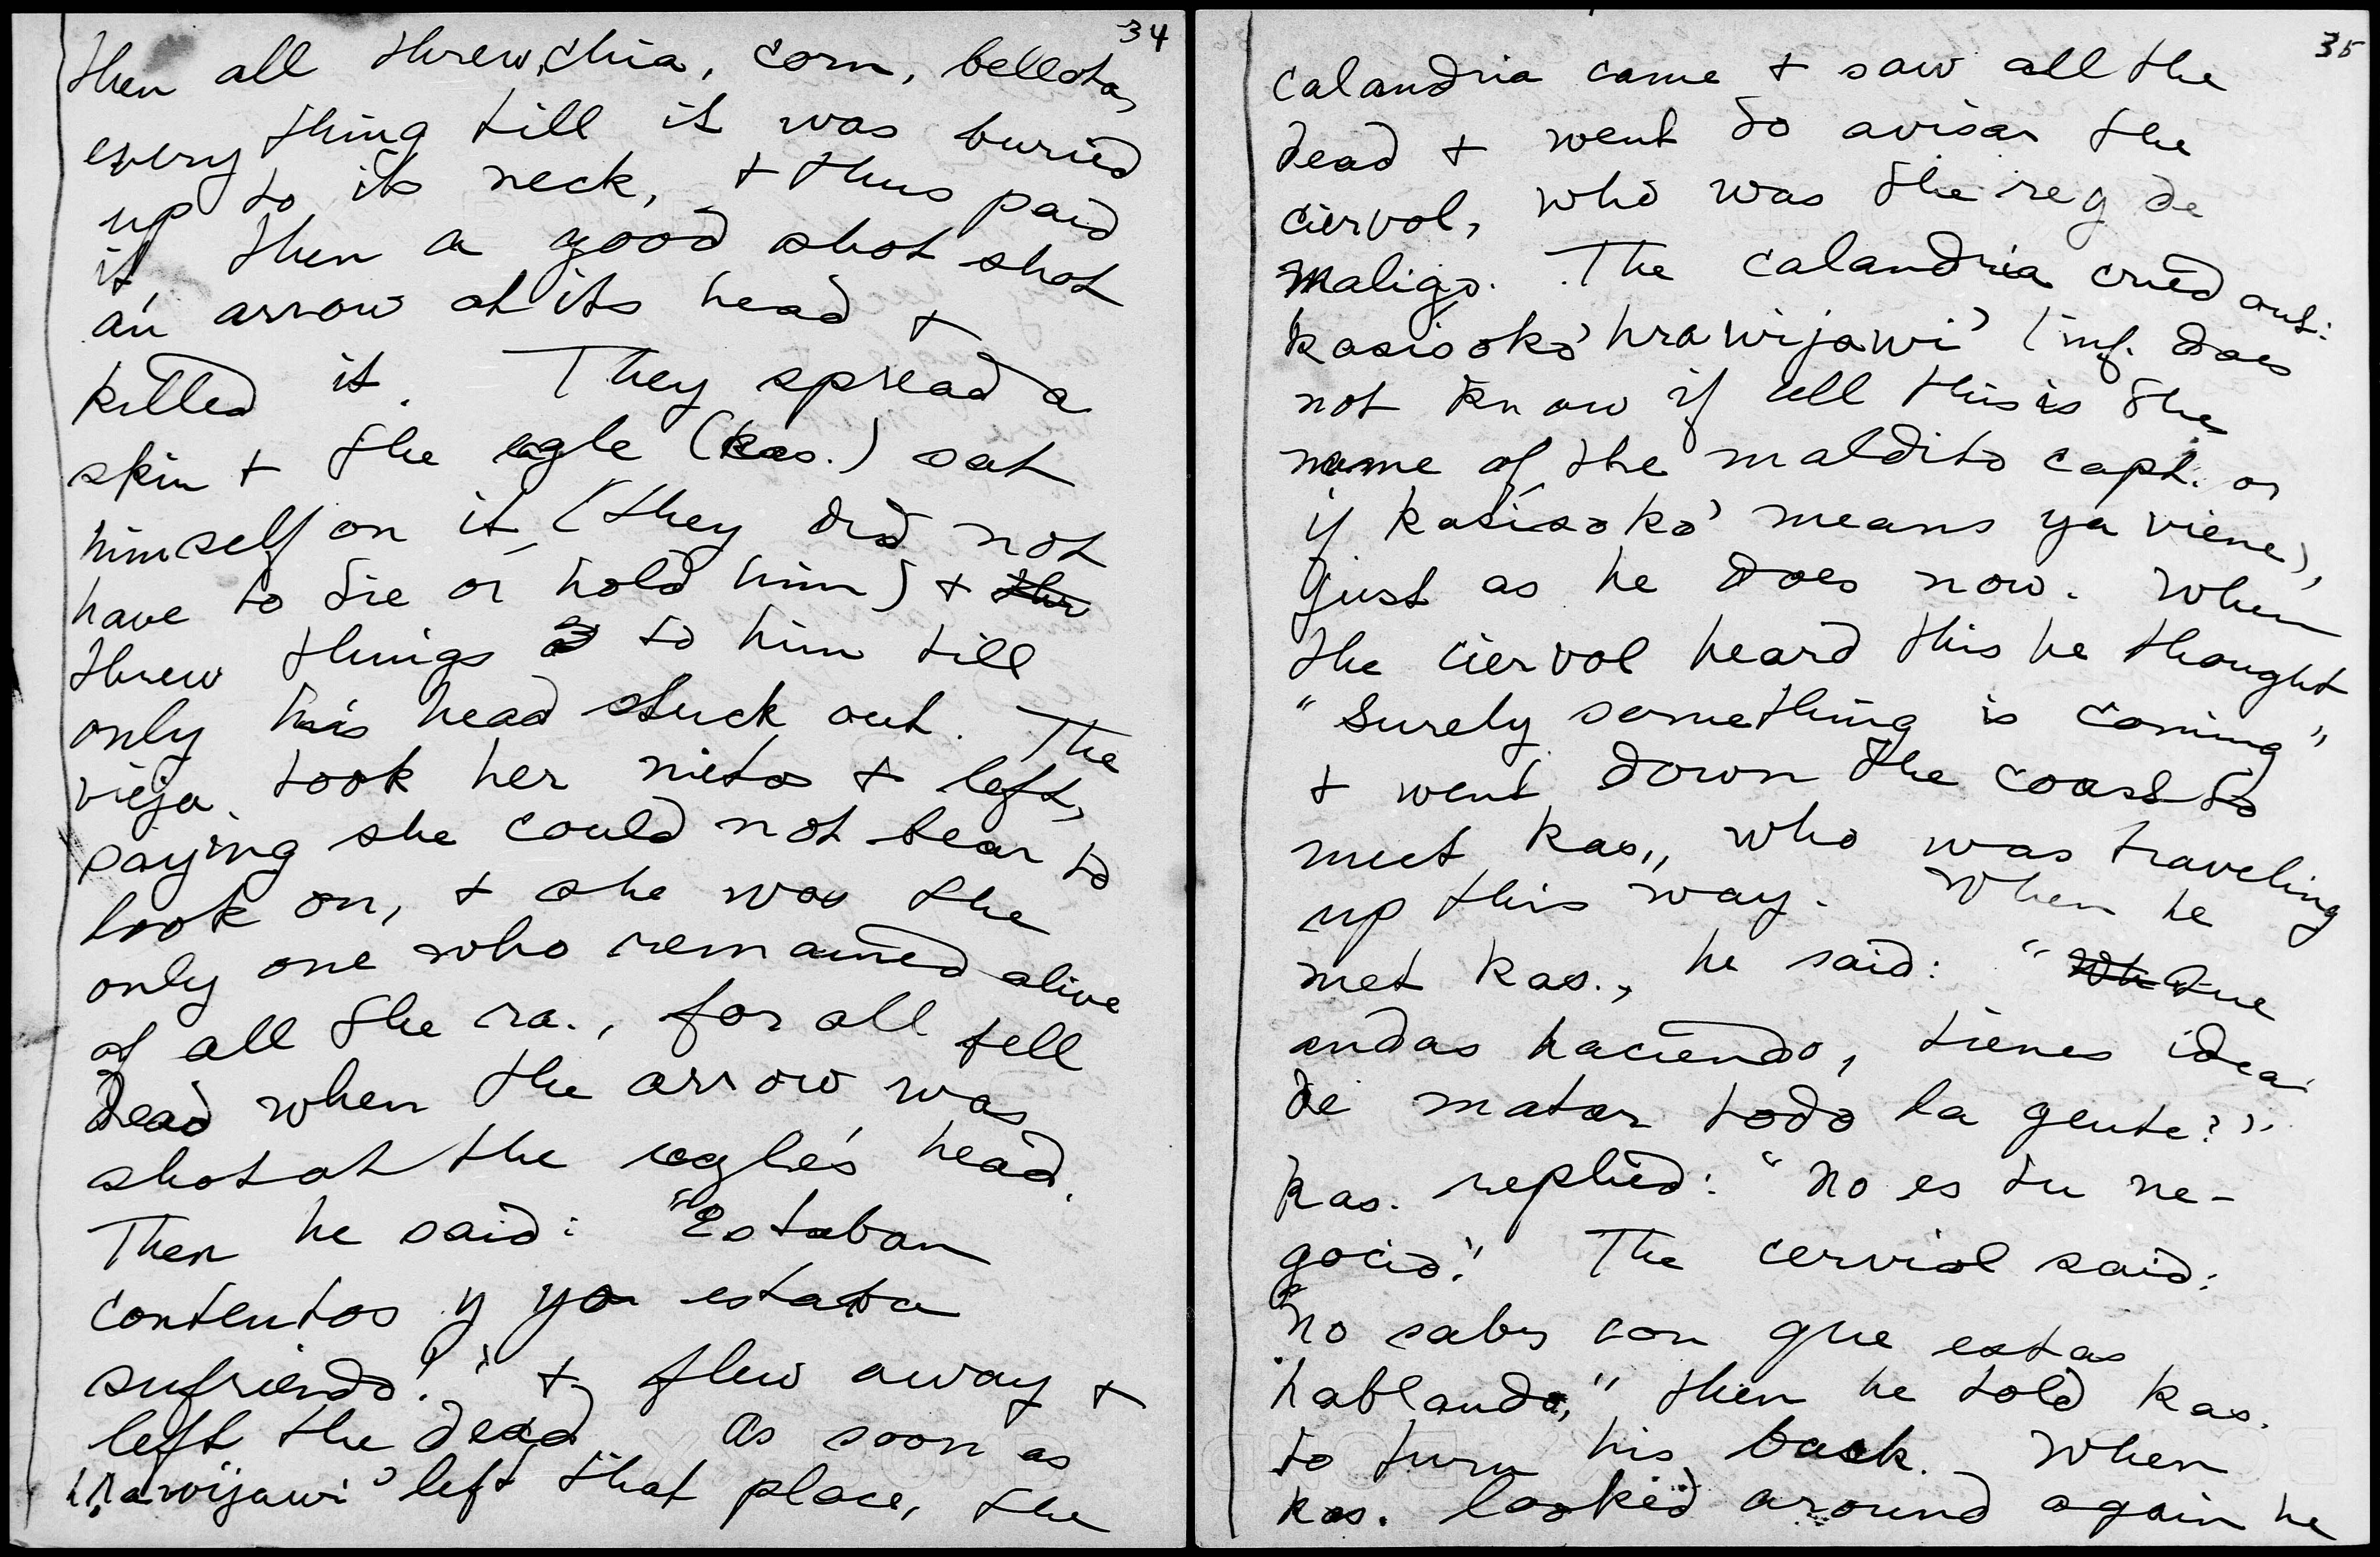 34
then all threw chia, corn, bellotas,
every thing till it was buried
up to its neck, + thus paid
it, then a good shot shot
an arrow at its head +
killed it. They spread a
skin + the egle (kas.) sat
himself on it (they did not
have to tie or hold him) + thr
threw things to him till
only his head stuck out. The
vieja took her nietos + left,
saying she could not bear to
look on, + she was the
only one who remained alive
of all the ra., for all fell
dead when the arrow was
shot at the eagle's head.
Then he said: "Estaban
contentos y yo estaba
sufriendo!" + flew away +
left the dead As soon as
hrawijawi' left that place, the
35
calandria came + saw all the
dead + went to avisar the
ciervol, who was the reg de
Maligo. The calandria cried out:
kasisoko' hrawijawi' (inf. does
not know if all this is the
name of the maldito capt. or
if kasisoko' means ya viene),
just as he does now. When
the ciervol heard this he thought
"Surely something is coming"
+ went down the coast to
meet kas., who was traveling
up this way. When he
met kas., he said: "Wh Que
andas haciendo, tienes idea
de matar todo la gente?".
kas. replied: "No es tu ne-
gocio." The cerviol said:
"No sabes con que estas
hablando," then he told kas.
to turn his back. When
kas. looked around again he